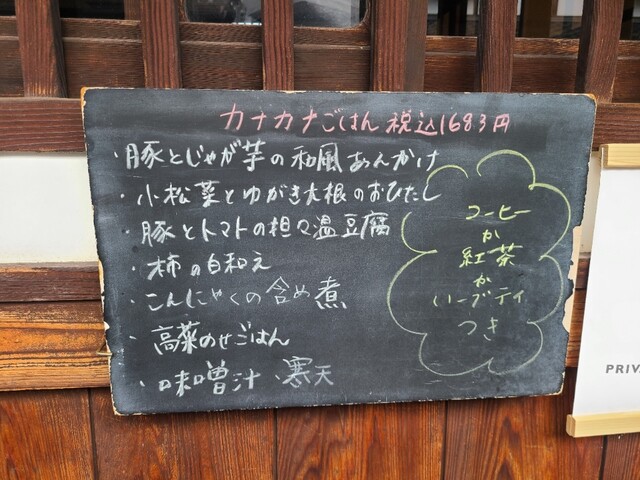 カナカナごはん 税込1683円
・豚とじゃが芋の和風あんかけ
・小松菜とゆがき大根のおひたし
・豚とトマトの担々温豆腐
・柿の白和え
・こんにゃくの含め煮
・高菜のせごはん
・味噌汁 ・寒天
コーヒー
か
紅茶
か
ハーブティ
つき
PRIVA